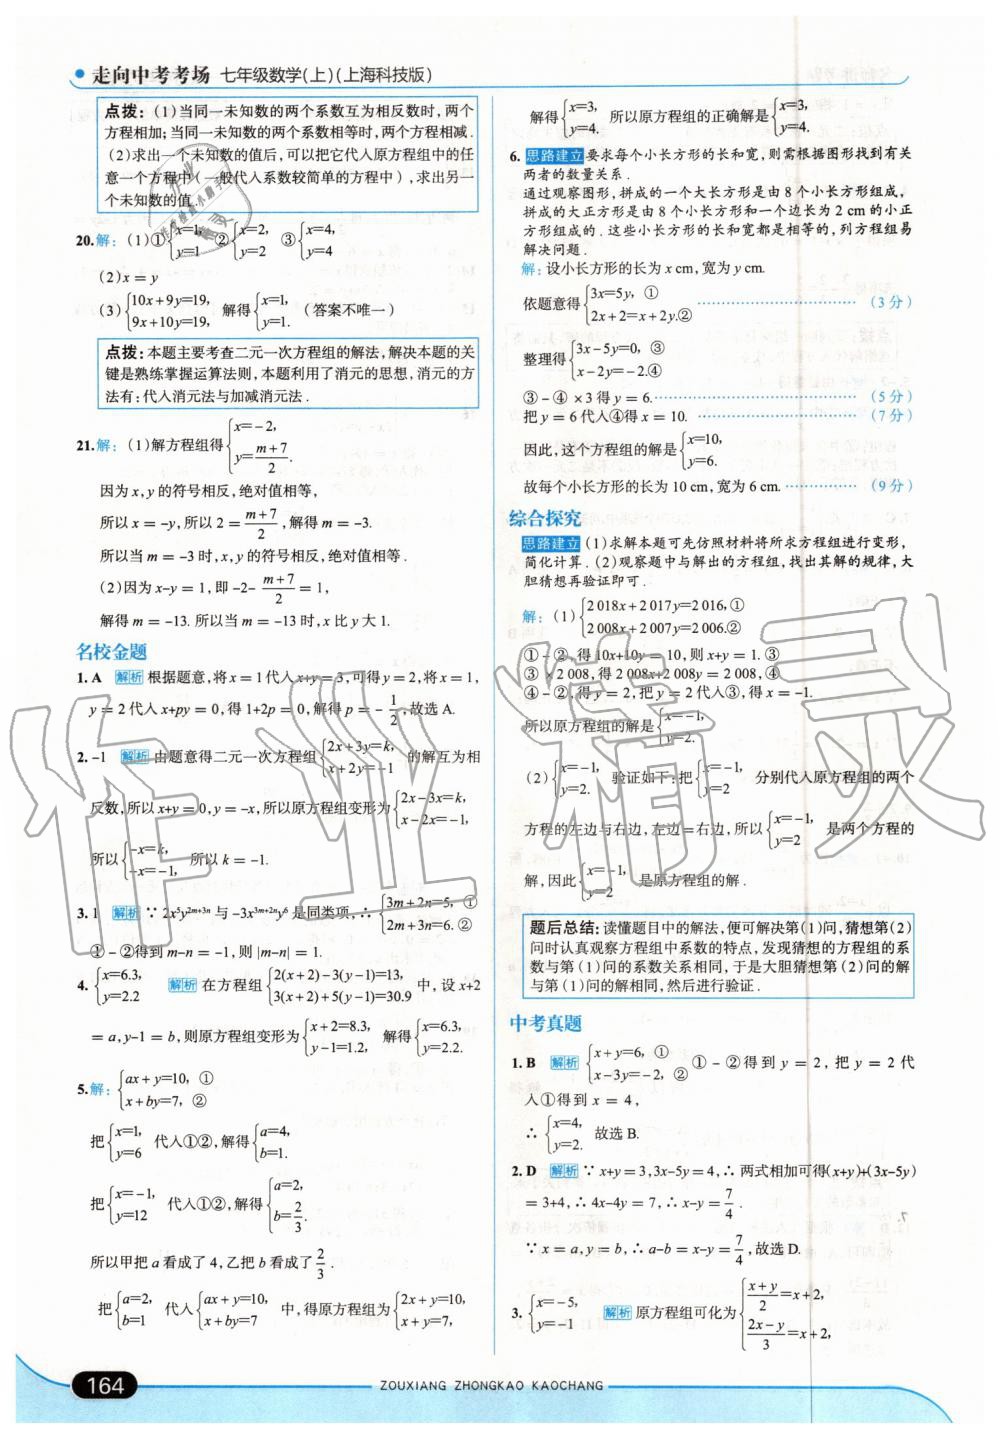 走向中考考场 七年级数学(上)(上海科技版)
点拨:(1)当同一未知数的两个系数互为相反数时,两个
方程相加;当同一未知数的两个系数相等时,两个方程相减.
(2)求出一个未知数的值后,可以把它代入原方程组中的任
意一个方程中(一般代入系数较简单的方程中),求出另一
个未知数的值.
20.解:(1)①{x=1, y=1 ②{x=2, y=2 ③{x=4, y=4
(2)x=y
(3){10x+9y=19, 9x+10y=19, 解得{x=1, y=1. (答案不唯一)
点拨:本题主要考查二元一次方程组的解法,解决本题的关
键是熟练掌握运算法则,本题利用了消元的思想,消元的方
法有:代入消元法与加减消元法.
21.解:(1)解方程组得{x=-2, y=(m+7)/2.
因为x,y的符号相反,绝对值相等,
所以x=-y,所以2=(m+7)/2,解得m=-3.
所以当m=-3时,x,y的符号相反,绝对值相等.
(2)因为x-y=1,即-2-(m+7)/2=1,
解得m=-13.所以当m=-13时,x比y大1.
名校金题
1.A 解析 根据题意,将x=1代入x+y=3,可得y=2,将x=1,
y=2代入x+py=0,得1+2p=0,解得p=-1/2,故选A.
2.-1 解析 由题意得二元一次方程组{2x+3y=k, x+2y=-1 的解互为相
反数,所以x+y=0,y=-x,所以原方程组变形为{2x-3x=k, x-2x=-1,
所以{-x=k, -x=-1, 所以k=-1.
3.1 解析 ∵2x⁵y²ᵐ⁺³ⁿ与-3x³ᵐ⁺²ⁿy⁶是同类项,∴{3m+2n=5,① 2m+3n=6.②
①-②得到m-n=-1,则|m-n|=1.
4.{x=6.3, y=2.2 解析 在方程组{2(x+2)-3(y-1)=13, 3(x+2)+5(y-1)=30.9 中,设x+2
=a,y-1=b,则原方程组变形为{x+2=8.3, y-1=1.2, 解得{x=6.3, y=2.2.
5.解:{ax+y=10,① x+by=7,②
把{x=1, y=6 代入①②,解得{a=4, b=1.
把{x=-1, y=12 代入①②,解得{a=2, b=2/3.
所以甲把a看成了4,乙把b看成了2/3.
把{a=2, b=1 代入{ax+y=10, x+by=7 中,得原方程组为{2x+y=10, x+y=7,
解得{x=3, y=4. 所以原方程组的正确解是{x=3, y=4.
6.思路建立 要求每个小长方形的长和宽,则需根据图形找到有关
两者的数量关系.
通过观察图形,拼成的一个大长方形是由8个小长方形组成,
拼成的大正方形是由8个小长方形和一个边长为2 cm的小正
方形组成的.这些小长方形的长和宽都是相等的,列方程组易
解决问题.
解:设小长方形的长为x cm,宽为y cm.
依题意得{3x=5y,① 2x+2=x+2y.② ……(3分)
整理得{3x-5y=0,③ x-2y=-2.④
③-④×3得y=6.……(5分)
把y=6代入④得x=10.……(7分)
因此,这个方程组的解是{x=10, y=6.
故每个小长方形的长为10 cm,宽为6 cm.……(9分)
综合探究
思路建立 (1)求解本题可先仿照材料将所求方程组进行变形,
简化计算.(2)观察题中与解出的方程组,找出其解的规律,大
胆猜想再验证即可.
解:(1){2 018x+2 017y=2 016,① 2 008x+2 007y=2 006.②
①-②,得10x+10y=10,则x+y=1.③
③×2 008,得2 008x+2 008y=2 008.④
④-②,得y=2,把y=2代入③,得x=-1.
所以原方程组的解是{x=-1, y=2.
(2){x=-1, y=2. 验证如下:把{x=-1, y=2 分别代入原方程组的两个
方程的左边与右边,左边=右边,所以{x=-1, y=2 是两个方程的
解,因此{x=-1, y=2 是原方程组的解.
题后总结:读懂题目中的解法,便可解决第(1)问,猜想第(2)
问时认真观察方程组中系数的特点,发现猜想的方程组的系
数与第(1)问的系数关系相同,于是大胆猜想第(2)问的解
与第(1)问的解相同,然后进行验证.
中考真题
1.B 解析 {x+y=6,① x-3y=-2,② ①-②得到y=2,把y=2代
入①得到x=4,
∴{x=4, y=2. 故选B.
2.D 解析 ∵x+y=3,3x-5y=4,∴两式相加可得(x+y)+(3x-5y)
=3+4,∴4x-4y=7,∴x-y=7/4.
∵x=a,y=b,∴a-b=x-y=7/4,故选D.
3.{x=-5, y=-1 解析 原方程组可化为{(x+y)/2=x+2, (2x-y)/3=x+2,
164
ZOUXIANG ZHONGKAO KAOCHANG
作业精灵